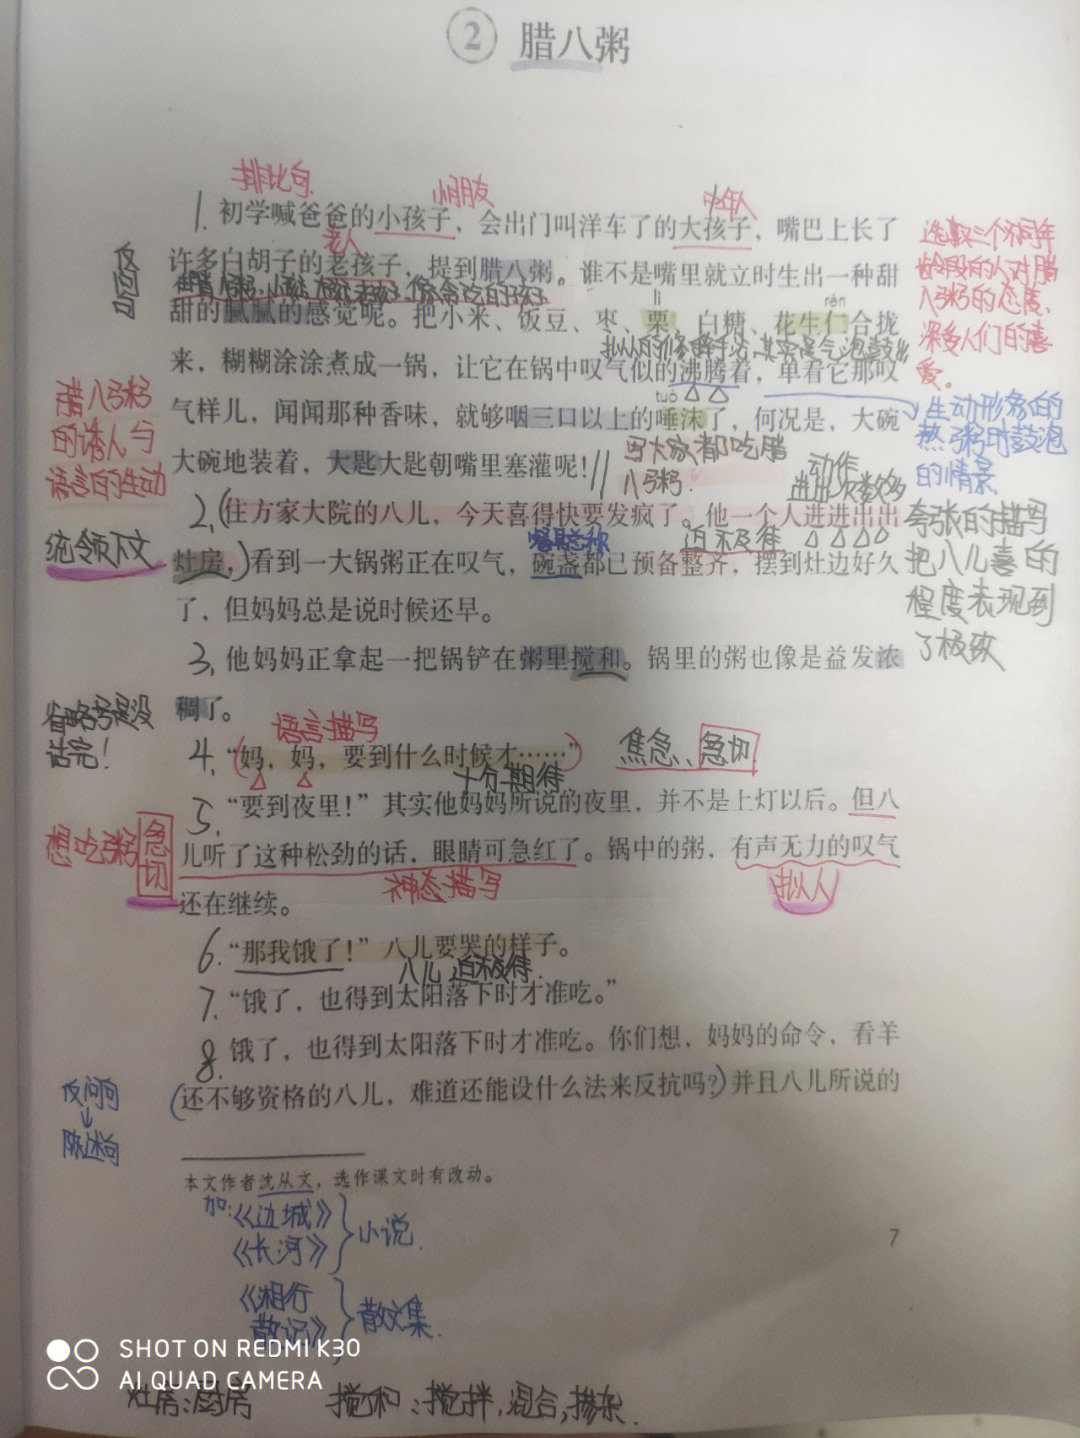 ② 腊八粥
排比句
小朋友
中年人
1. 初学喊爸爸的小孩子，会出门叫洋车了的大孩子，嘴巴上长了
老人
许多白胡子的老孩子，提到腊八粥。谁不是嘴里就立时生出一种甜
反问句
lì
rén
甜的腻腻的感觉呢。把小米、饭豆、枣、栗、白糖、花生仁合拢
来，糊糊涂涂煮成一锅，让它在锅中叹气似的沸腾着，单看它那叹
tuò
气样儿，闻闻那种香味，就够咽三口以上的唾沫了，何况是，大碗
大碗地装着，大匙大匙朝嘴里塞灌呢！
写大家都吃腊
八粥.
选取三个不同年
龄段的人对腊
八粥的态度，
深受人们的喜
爱。
腊八粥
的诱人与
语言的生动
生动形象的
熬粥时鼓泡
的情景
动作
进出次数多
2. (住方家大院的八儿，今天喜得快要发疯了。他一个人进进出出
统领下文
餐具总称
迫不及待
灶房，)看到一大锅粥正在叹气，碗盏都已预备整齐，摆到灶边好久
了，但妈妈总是说时候还早。
夸张的描写
把八儿喜的
程度表现到
了极致
3. 他妈妈正拿起一把锅铲在粥里搅和。锅里的粥也像是益发浓
稠了。
省略号是没
话完！
语言描写
4. “妈，妈，要到什么时候才……”
焦急、急切
十分期待
5. “要到夜里！”其实他妈妈所说的夜里，并不是上灯以后。但八
想吃粥急切
儿听了这种松劲的话，眼睛可急红了。锅中的粥，有声无力的叹气
神态描写
拟人
还在继续。
6. “那我饿了！”八儿要哭的样子。
八儿迫不及待.
7. “饿了，也得到太阳落下时才准吃。”
8. 饿了，也得到太阳落下时才准吃。你们想，妈妈的命令，看羊
(还不够资格的八儿，难道还能设什么法来反抗吗？)并且八儿所说的
反问句
↓
陈述句
本文作者沈从文，选作课文时有改动。
加:《边城》
《长河》
小说.
《湘行
散记》
散文集.
7
SHOT ON REDMI K30
AI QUAD CAMERA
灶房:厨房 搅和:搅拌,混合,掺杂.